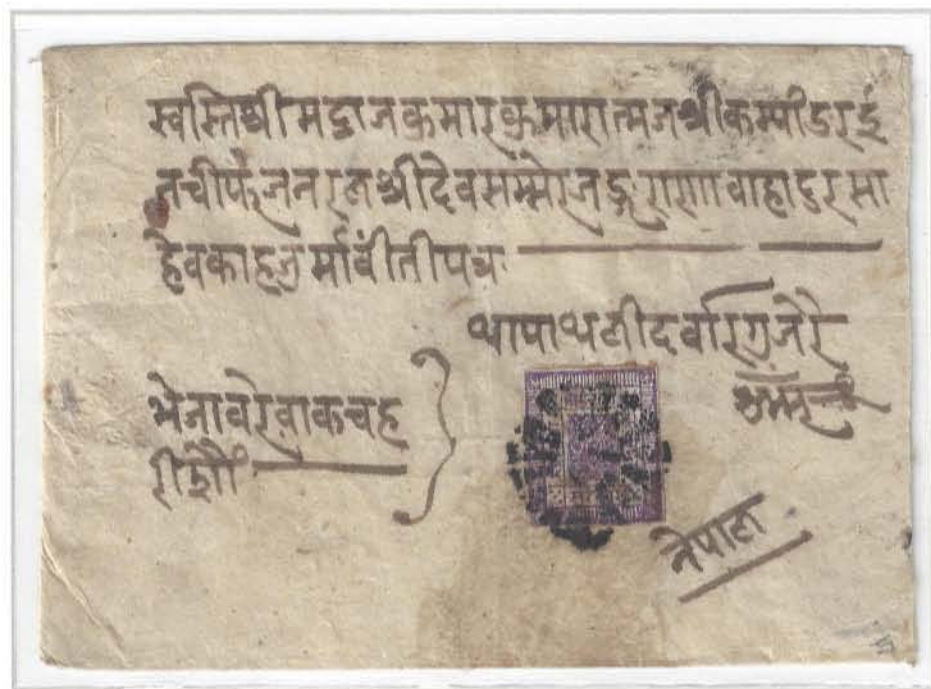 स्वस्तिश्रीमद्राजकुमारकुमारात्मजश्रीकम्पाँडरई
नचीफ़जनरलश्रीदेवसम्सेरजङ्गराणावाहादुरसा
हेवकाहजुर्माबींतीपत्र
थापाथलीदर्वारगुजेरै
भेजावरेवाकचह
रीडौं
नेपाल